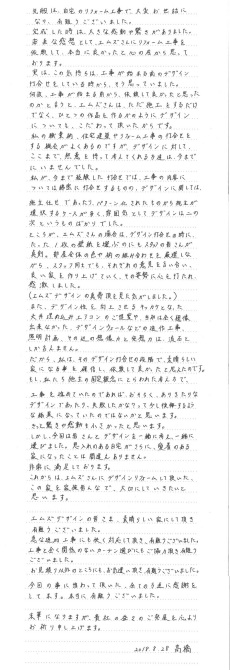 先般は、自宅のリフォーム工事で大変お世話に
なり、有難うございました。
完成した時は、大きな感動や驚きがありました。
率直な感想として、エムズさんにリフォーム工事を
依頼して、本当に良かったと心の底から思って
おります。
実は、この気持ちは、工事が始まる前のデザイン
打合せをしている時から、そう思っていました。
何故、工事が始まる前から、依頼して良かったと思った
のかと言うと、エムズさんは、ただ施工をするだけ
でなく、ひとつの作品を作るかのようにデザイン
についても、こだわって頂いたからです。
私の職業柄、住宅建築やリフォーム工事の打合せを
する機会がよくあるのですが、デザインに対して、
ここまで、熱意を持って考えてくれる方達は、今まで
にいませんでした。
私が、今まで経験した打合せでは、工事の内容に
ついては綿密に打合せするものの、デザインに関しては、
施主任せであったり、パターン化されたものから施主が
選択するケースが多く、雰囲気としてデザインは二の
次というものばかりでした。
ところが、エムズさんの場合は、デザイン打合せの時に、
たった1枚の壁紙を選ぶのにもスタッフの皆さんが
真剣。部屋全体の色や柄の組み合わせを厳選しな
がら、スタッフ同士でも、それぞれの意見を言い合い、
良い家を作り上げていく、その姿勢に心を打たれ、
感激しました。
(エムズデザインの真骨頂を見た気がしました。)
また、デザイン性を向上させる
大
出来なかった、デザインウォールなどの造作工事、
照明計画、その他の想像力と発想力は、流石と
しか言えません。
だから、私は、そのデザイン打合せの段階で、素晴らしい
家になる事を確信し、依頼して良かったと思えたのです。
もし、私たち施主の固定観念にとらわれた考え方で、
工事を進めていたのであれば、おそらく、ありきたりな
デザインであったり、失敗したかなって少し後悔するよう
な結果になっていたのではないかと思います。
きっと驚きや感動も小さかったと思います。
しかし、今回は皆さんとデザインを一緒に考え、一緒に
造りました。思い入れのある自宅がさらに、愛着のある
家になったことは間違えありません。
非常に満足しております。
これからは、エムズさんにデザインリフォームして頂いた、
この家を家族皆んなで、大切にしていきたいと
思います。
エムズデザインの皆さま、素晴らしい家にして頂き
有難うございました。
急な追加工事にも快く対応して頂き、有難うございました。
工事と全く関係のないカーテン選びにもご協力頂き有難う
ございました。
お見積り以外のところにも、お気遣い頂き、有難うございました。
今回の事に携わって頂いた、全ての方達に感謝を
してます。本当に有難うございました。
末筆になりますが、貴社の益々のご発展を心より
お祈り申し上げます。
2018.8.28 高橋